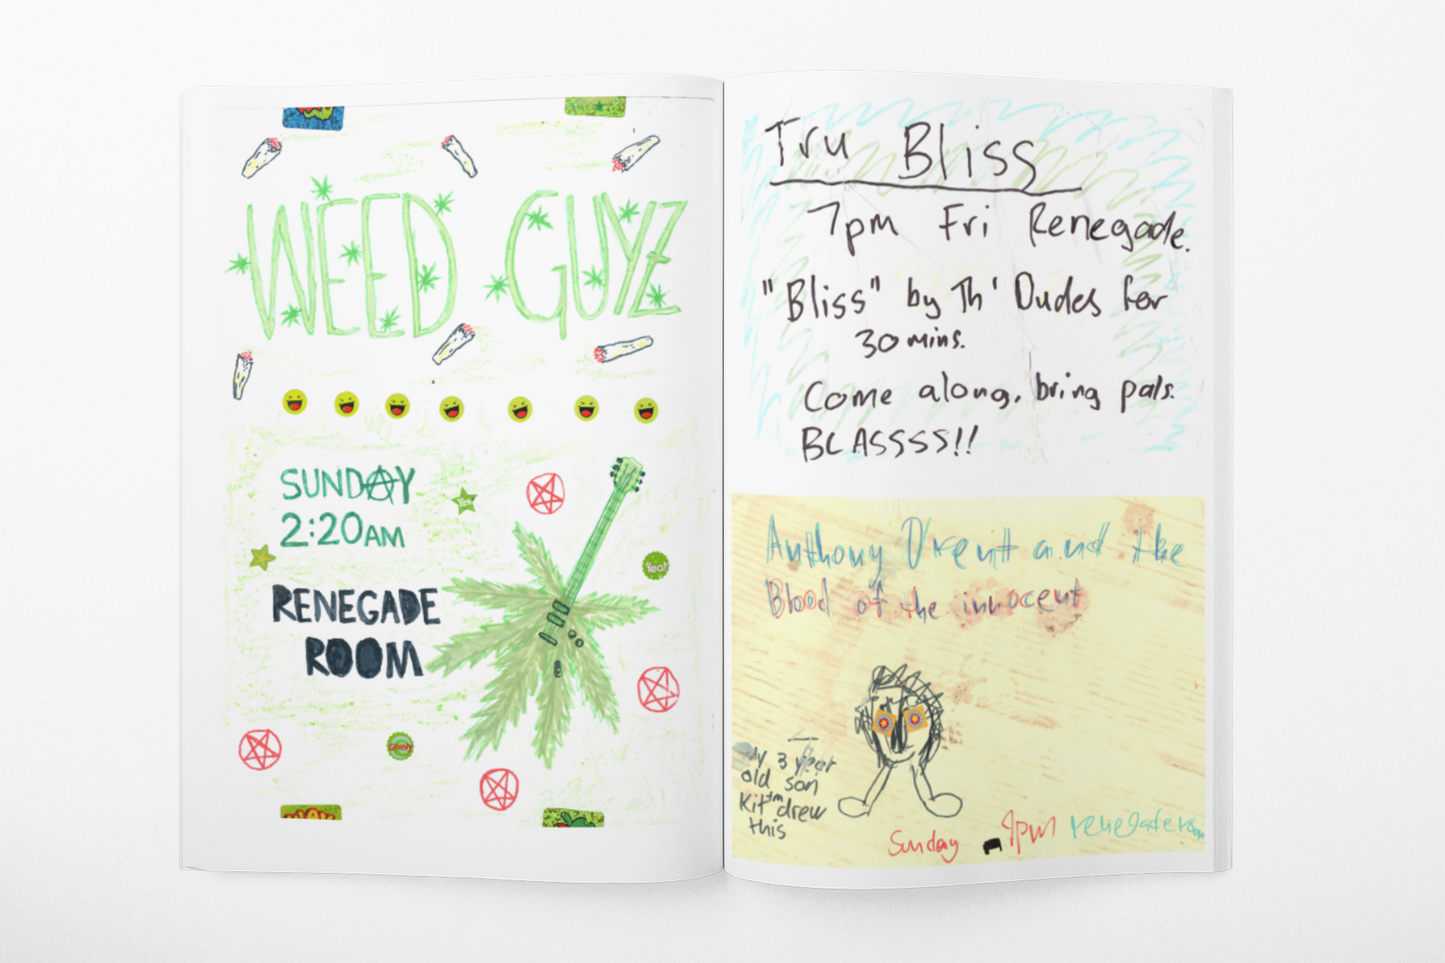 WEED GUYZ
SUNDAY
2:20AM
RENEGADE
ROOM
Yeah
Tru Bliss
7pm Fri Renegade.
"Bliss" by Th' Dudes for
30 mins.
Come along, bring pals.
BLASSSS!!
Anthony D'rent and the
Blood of the innocent
My 3 year
old son
Kit™ drew
this
Sunday 9pm renegade room